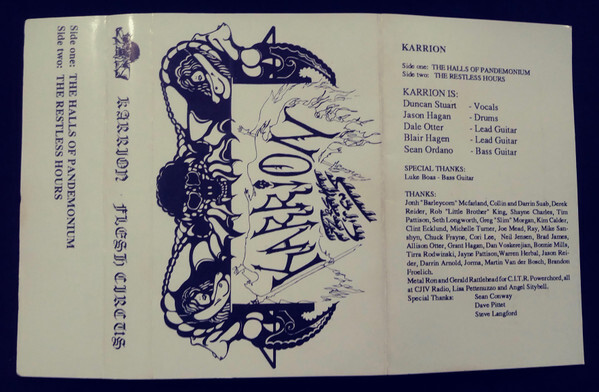 Side one: THE HALLS OF PANDEMONIUM
Side two: THE RESTLESS HOURS
KARRION · FLESH CIRCUS
KARRION
KARRION
Side one: THE HALLS OF PANDEMONIUM
Side two: THE RESTLESS HOURS
KARRION IS:
Duncan Stuart - Vocals
Jason Hagan - Drums
Dale Otter - Lead Guitar
Blair Hagen - Lead Guitar
Sean Ordano - Bass Guitar
SPECIAL THANKS:
Luke Boas - Bass Guitar
THANKS:
Jonh "Barleycorn" Mcfarland, Cullin and Darrin Suab, Derek
Reider, Rob "Little Brother" King, Shayne Charles, Tim
Pattison, Seth Longworth, Greg "Slim" Morgan, Kim Calder,
Clint Ecklund, Michelle Turner, Joe Mead, Ray, Mike San-
abyn, Chuck Frayne, Cori Lee, Neil Jensen, Brad James,
Allison Otter, Grant Hagan, Dan Voskerejian, Bonnie Mills,
Tirra Rodwinski, Jayne Pattison, Warren Herbal, Jason Rei-
der, Darrin Arnold, Jorma, Martin Van der Bosch, Brandon
Froelich.
Metal Ron and Gerald Rattlehead for C.I.T.R. Powerchord, all
at CJIV Radio, Lisa Pettenuzzo and Angel Sitybell.
Special Thanks: Sean Conway
Dave Pittet
Steve Langford